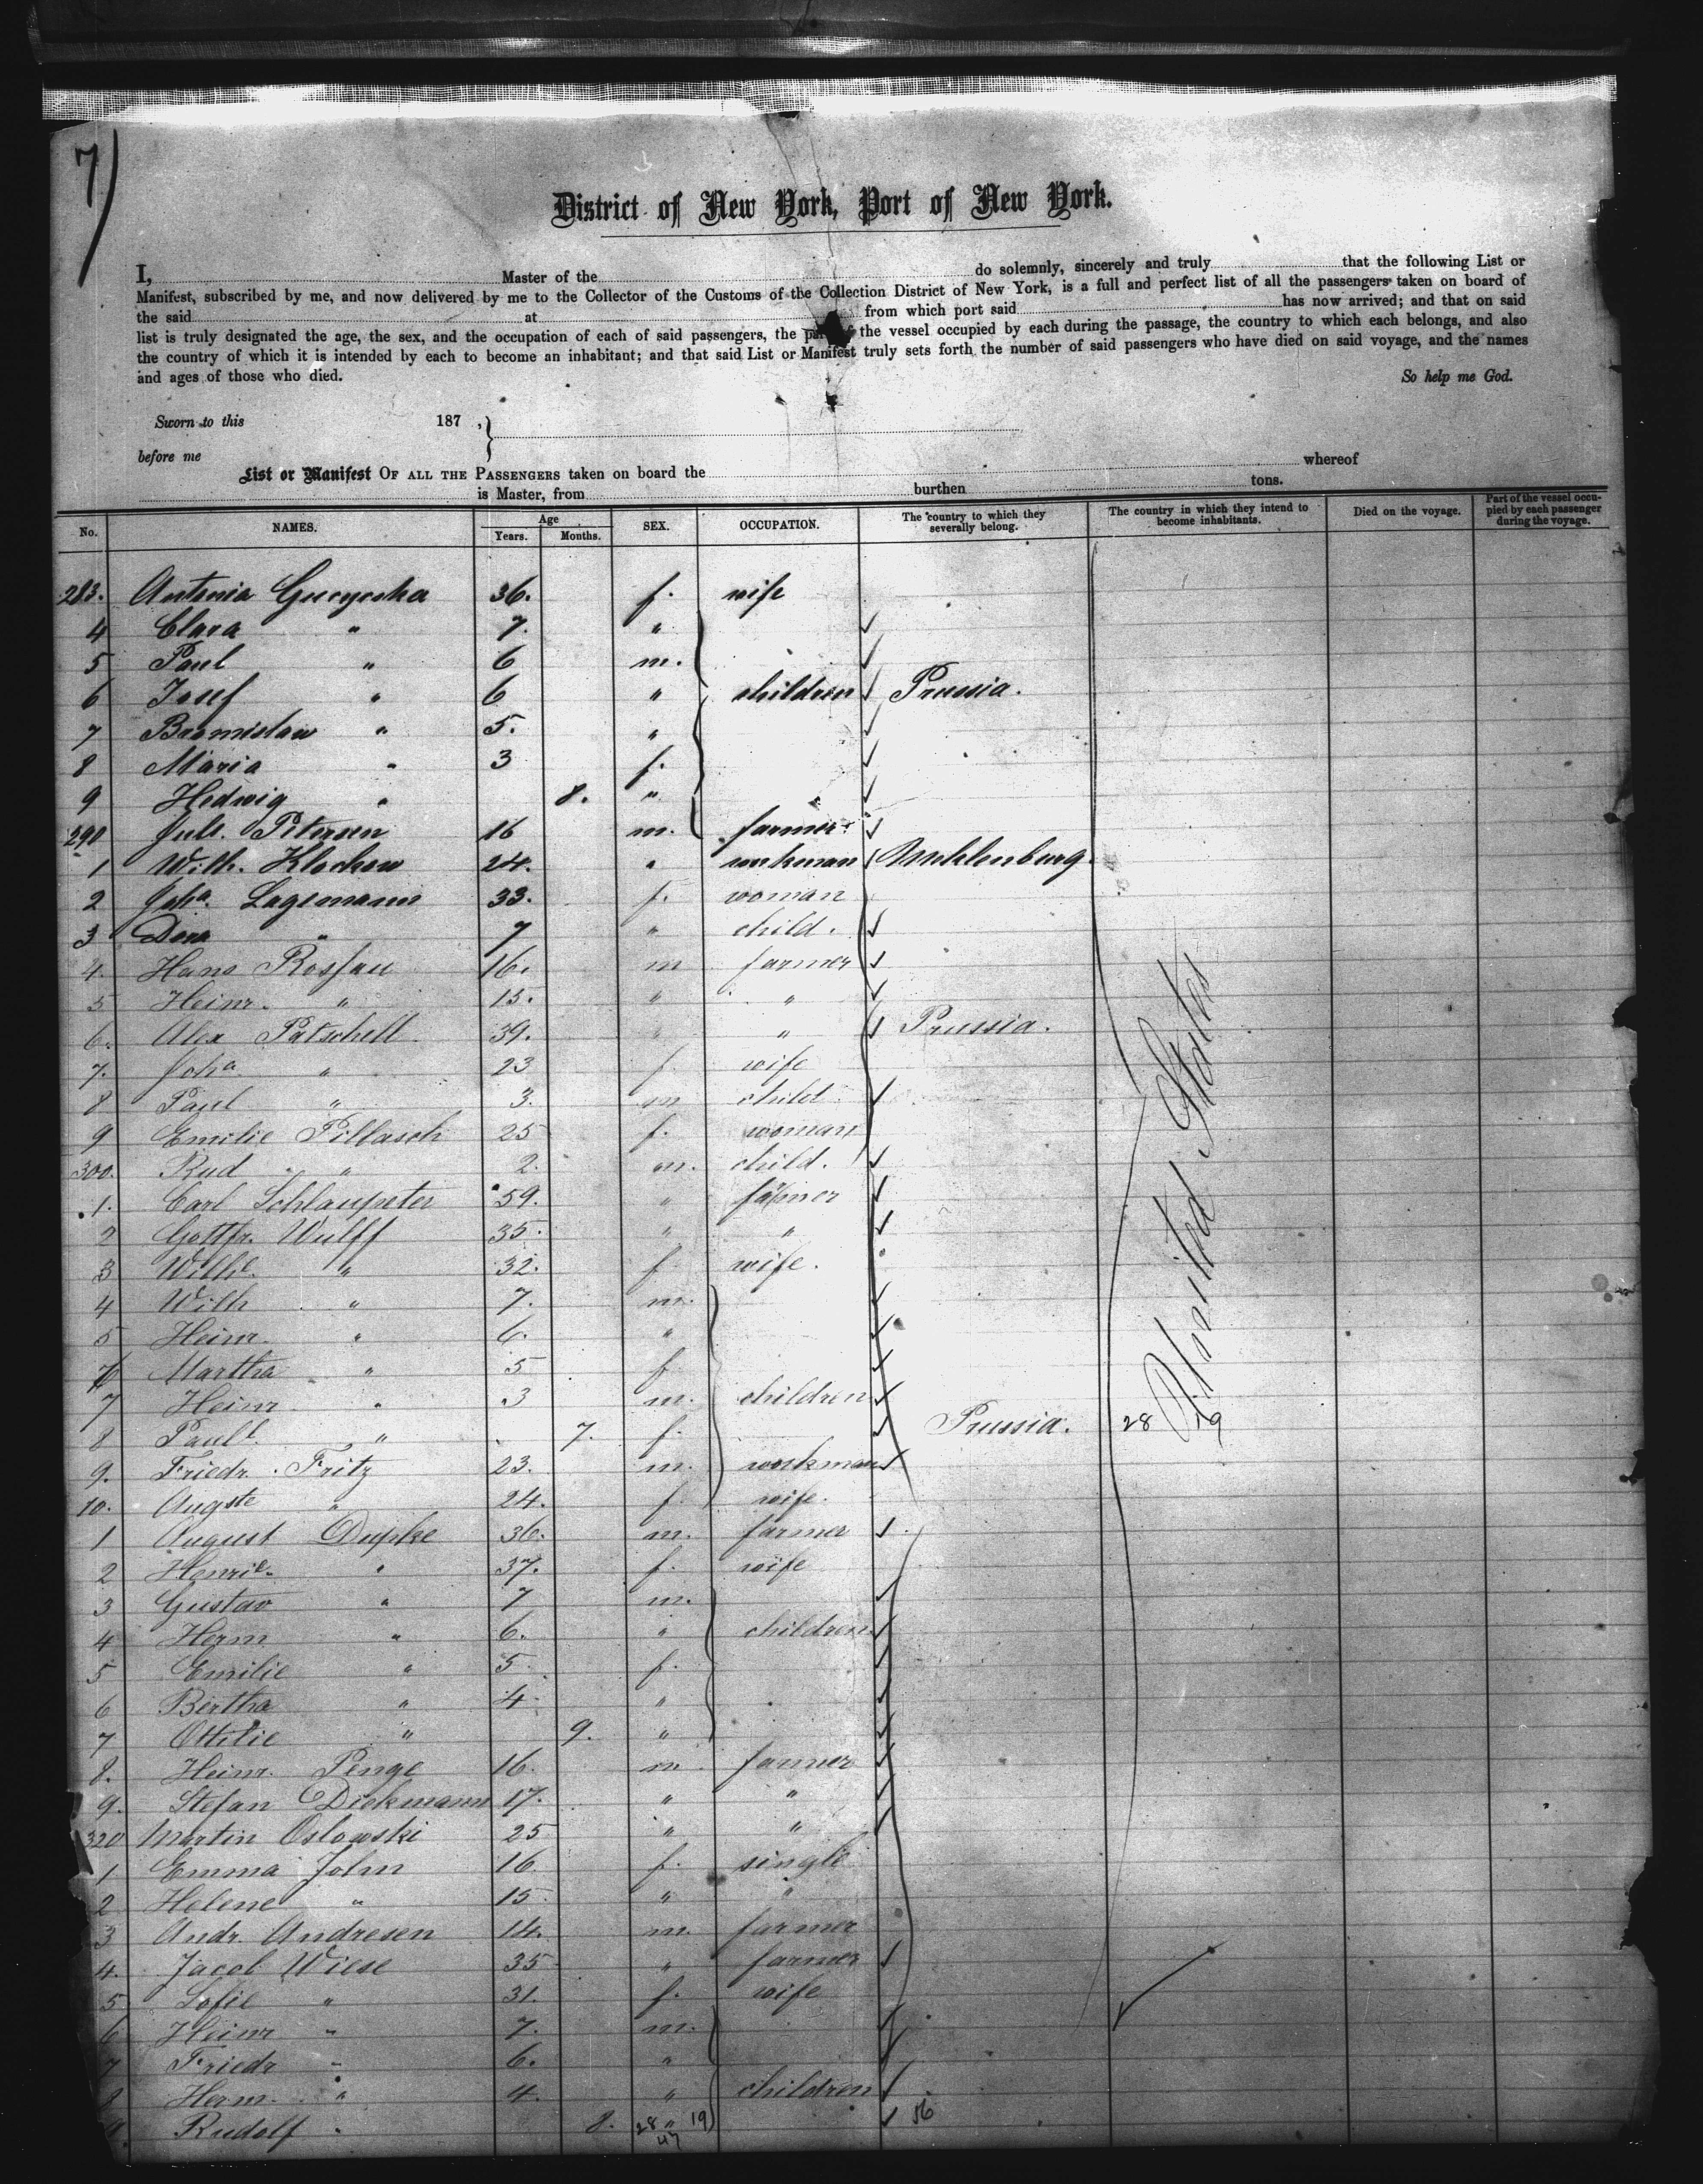 7)
District of New York, Port of New York.
I, Master of the do solemnly, sincerely and truly that the following List or
Manifest, subscribed by me, and now delivered by me to the Collector of the Customs of the Collection District of New York, is a full and perfect list of all the passengers taken on board of
the said at from which port said has now arrived; and that on said
list is truly designated the age, the sex, and the occupation of each of said passengers, the the vessel occupied by each during the passage, the country to which each belongs, and also
the country of which it is intended by each to become an inhabitant; and that said List or Manifest truly sets forth the number of said passengers who have died on said voyage, and the names
and ages of those who died. So help me God.
Sworn to this 187 ,
before me
List or Manifest OF ALL THE PASSENGERS taken on board the whereof
is Master, from burthen tons.
No. NAMES. Age Years. Months. SEX. OCCUPATION. The country to which they severally belong. The country in which they intend to become inhabitants. Died on the voyage. Part of the vessel occupied by each passenger during the voyage.
283. Antonia 36. f. wife
4 Clara " 7. "
5 Paul " 6 m.
6 Josef " 6 " children Prussia.
7 Bronislaw " 5. "
8 Maria " 3 f.
9 Hedwig " 8. "
290 Juls. Petersen 16 m. farmer
1 Wilh. Klockow 24. " workman Mecklenburg
2 Joha. Lagemann 33. f. woman
3 Dora " 7 " child.
4. Hans Rossau 16. m farmer
5 Heinr. " 15. " "
6. Alex Patschell 39. " " Prussia.
7. Joha " 23 f. wife
8 Paul " 3. m child
9 Emilie Pillasch 25 f. woman
300. Rud " 2. m. child.
1. Carl Schlaupeter 59. " farmer
2 Gottfr. Wulff 35. " "
3 Wilhe. " 32. f wife.
4 Wilh " 7. m.
5 Heinr. " 6. "
6 Martha " 5 f.
7 Heinr " 3 m. children
8 Paull. " 7. f. Prussia. 28 19
United States
9. Friedr. Fritz 23. m. workman
10. Augste " 24. f. wife.
1 August Dupke 36. m. farmer
2 Henrie. " 37. f. wife
3 Gustav " 7 m.
4 Herm " 6. " children
5 Emilie " 5. f.
6 Bertha " 4. "
7 Ottilie " 9. "
8. Heinr. Penge 16. m farmer
9. Stefan Diekmann 17. " "
320 Martin Oslowski 25 " "
1 Emma John 16 f. single
2 Helene " 15 " "
3 Andr. Andresen 14. m. farmer
4. Jacob Wiese 35 " farmer
5 Sofie " 31. f. wife
6 Heinr " 7. m.
7 Friedr " 6. "
8 Herm. " 4. " children
9. Rudolf " 8. 28 " 19) 56
47